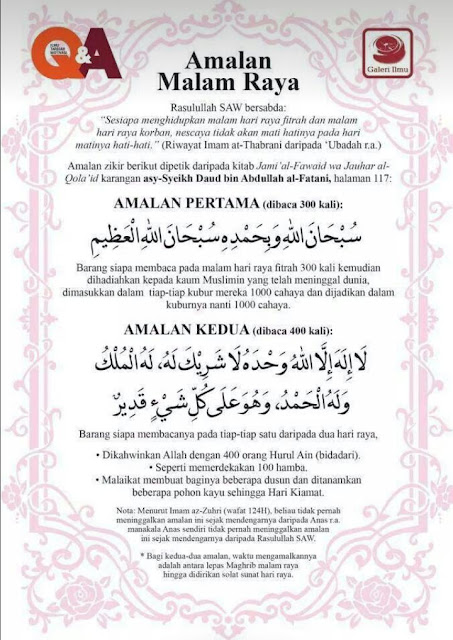 Q&A
Galeri Ilmu
Amalan
Malam Raya
Rasulullah SAW bersabda:
“Sesiapa menghidupkan malam hari raya fitrah dan malam
hari raya korban, nescaya tidak akan mati hatinya pada hari
matinya hati-hati.” (Riwayat Imam at-Thabrani daripada ‘Ubadah r.a.)
Amalan zikir berikut dipetik daripada kitab Jami’al-Fawaid wa Jauhar al-
Qola’id karangan asy-Syeikh Daud bin Abdullah al-Fatani, halaman 117:
AMALAN PERTAMA (dibaca 300 kali):
سُبْحَانَ اللهِ وَبِحَمْدِهِ سُبْحَانَ اللهِ الْعَظِيْمِ
Barang siapa membaca pada malam hari raya fitrah 300 kali kemudian
dihadiahkan kepada kaum Muslimin yang telah meninggal dunia,
dimasukkan dalam tiap-tiap kubur mereka 1000 cahaya dan dijadikan dalam
kuburnya nanti 1000 cahaya.
AMALAN KEDUA (dibaca 400 kali):
لَا إِلَهَ إِلَّا اللهُ وَحْدَهُ لَا شَرِيْكَ لَهُ، لَهُ الْمُلْكُ
وَلَهُ الْحَمْدُ، وَهُوَ عَلَى كُلِّ شَيْءٍ قَدِيْرٌ
Barang siapa membacanya pada tiap-tiap satu daripada dua hari raya,
• Dikahwinkan Allah dengan 400 orang Hurul Ain (bidadari).
• Seperti memerdekakan 100 hamba.
• Malaikat membuat baginya beberapa dusun dan ditanamkan
beberapa pohon kayu sehingga Hari Kiamat.
Nota: Menurut Imam az-Zuhri (wafat 124H), beliau tidak pernah
meninggalkan amalan ini sejak mendengarnya daripada Anas r.a.
manakala Anas sendiri tidak pernah meninggalkan amalan
ini sejak mendengarnya daripada Rasulullah SAW.
* Bagi kedua-dua amalan, waktu mengamalkannya
adalah antara lepas Maghrib malam raya
hingga didirikan solat sunat hari raya.